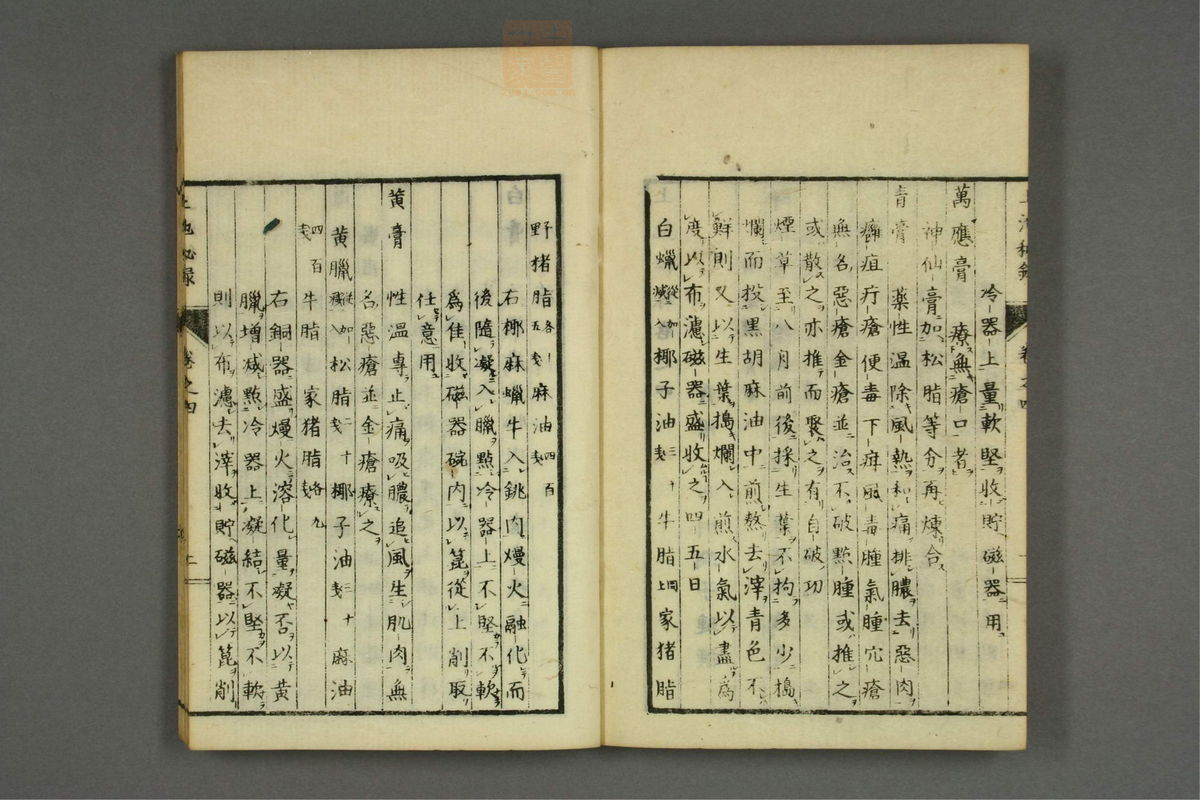 冷器上量軟堅收貯磁器用
萬應膏　療無瘡口者
神仙膏加松脂等分再煉合
青膏　藥性温除風熱和痛排膿去惡肉
癰疽疔瘡便毒下疳風毒腫氣腫穴瘡
無名惡瘡金瘡並治不破點腫或推之
或散之亦推而聚之有自破功
煙草至八月前後採生葉不拘多少搗
爛而投黒胡麻油中煎熬去滓青色不
鮮則又以生葉搗爛入煎水氣以盡為
度以布濾磁器盛收之四五日
白蠟從加減入椰子油三十戔牛脂上同家猪脂
野猪脂各五戔麻油四百戔
右椰麻蠟牛入銚肉熳火融化而
後隨凝入臘點冷器上不堅不軟
為佳收磁器碗内以篦從上削取
任意用
黄膏　性温專止痛吸膿追風生肌肉無
名惡瘡並金瘡療之
黄臘從加減入松脂二十戔椰子油三十戔麻油
四百戔牛脂　家猪脂各九戔
右銅器盛熳火溶化量凝否以黄
臘増減點冷器上凝結不堅不軟
則以布濾去滓收貯磁器以篦削
卷之四